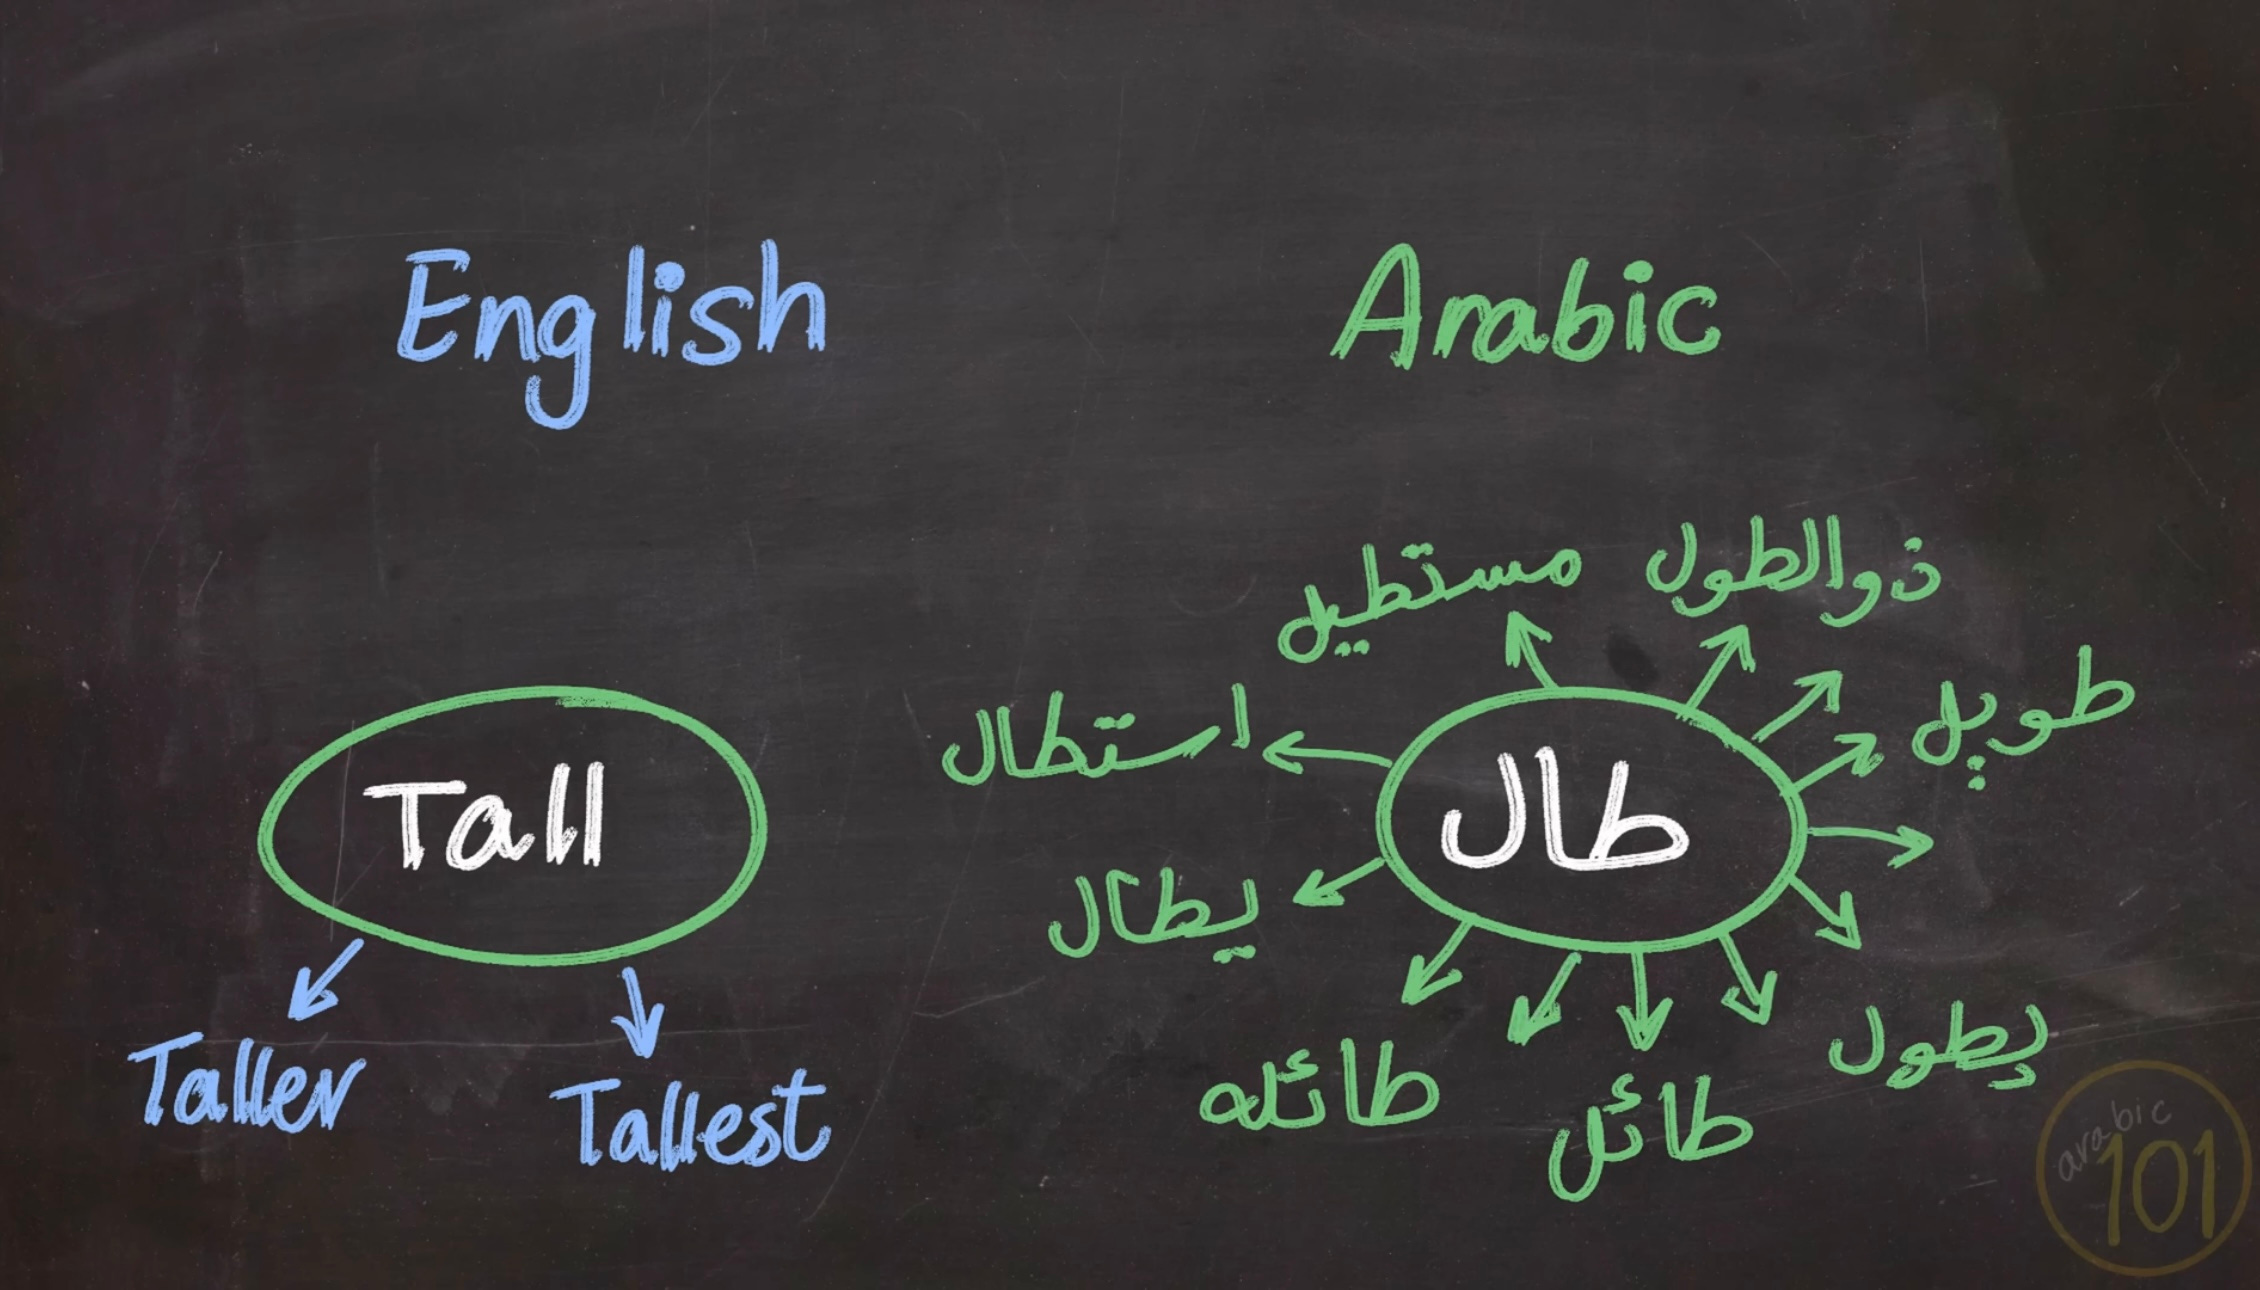 English
Arabic
Tall
Taller
Tallest
طال
مستطيل
ذوالطول
طويل
استطال
يطال
طائله
طائل
يطول
arabic
101